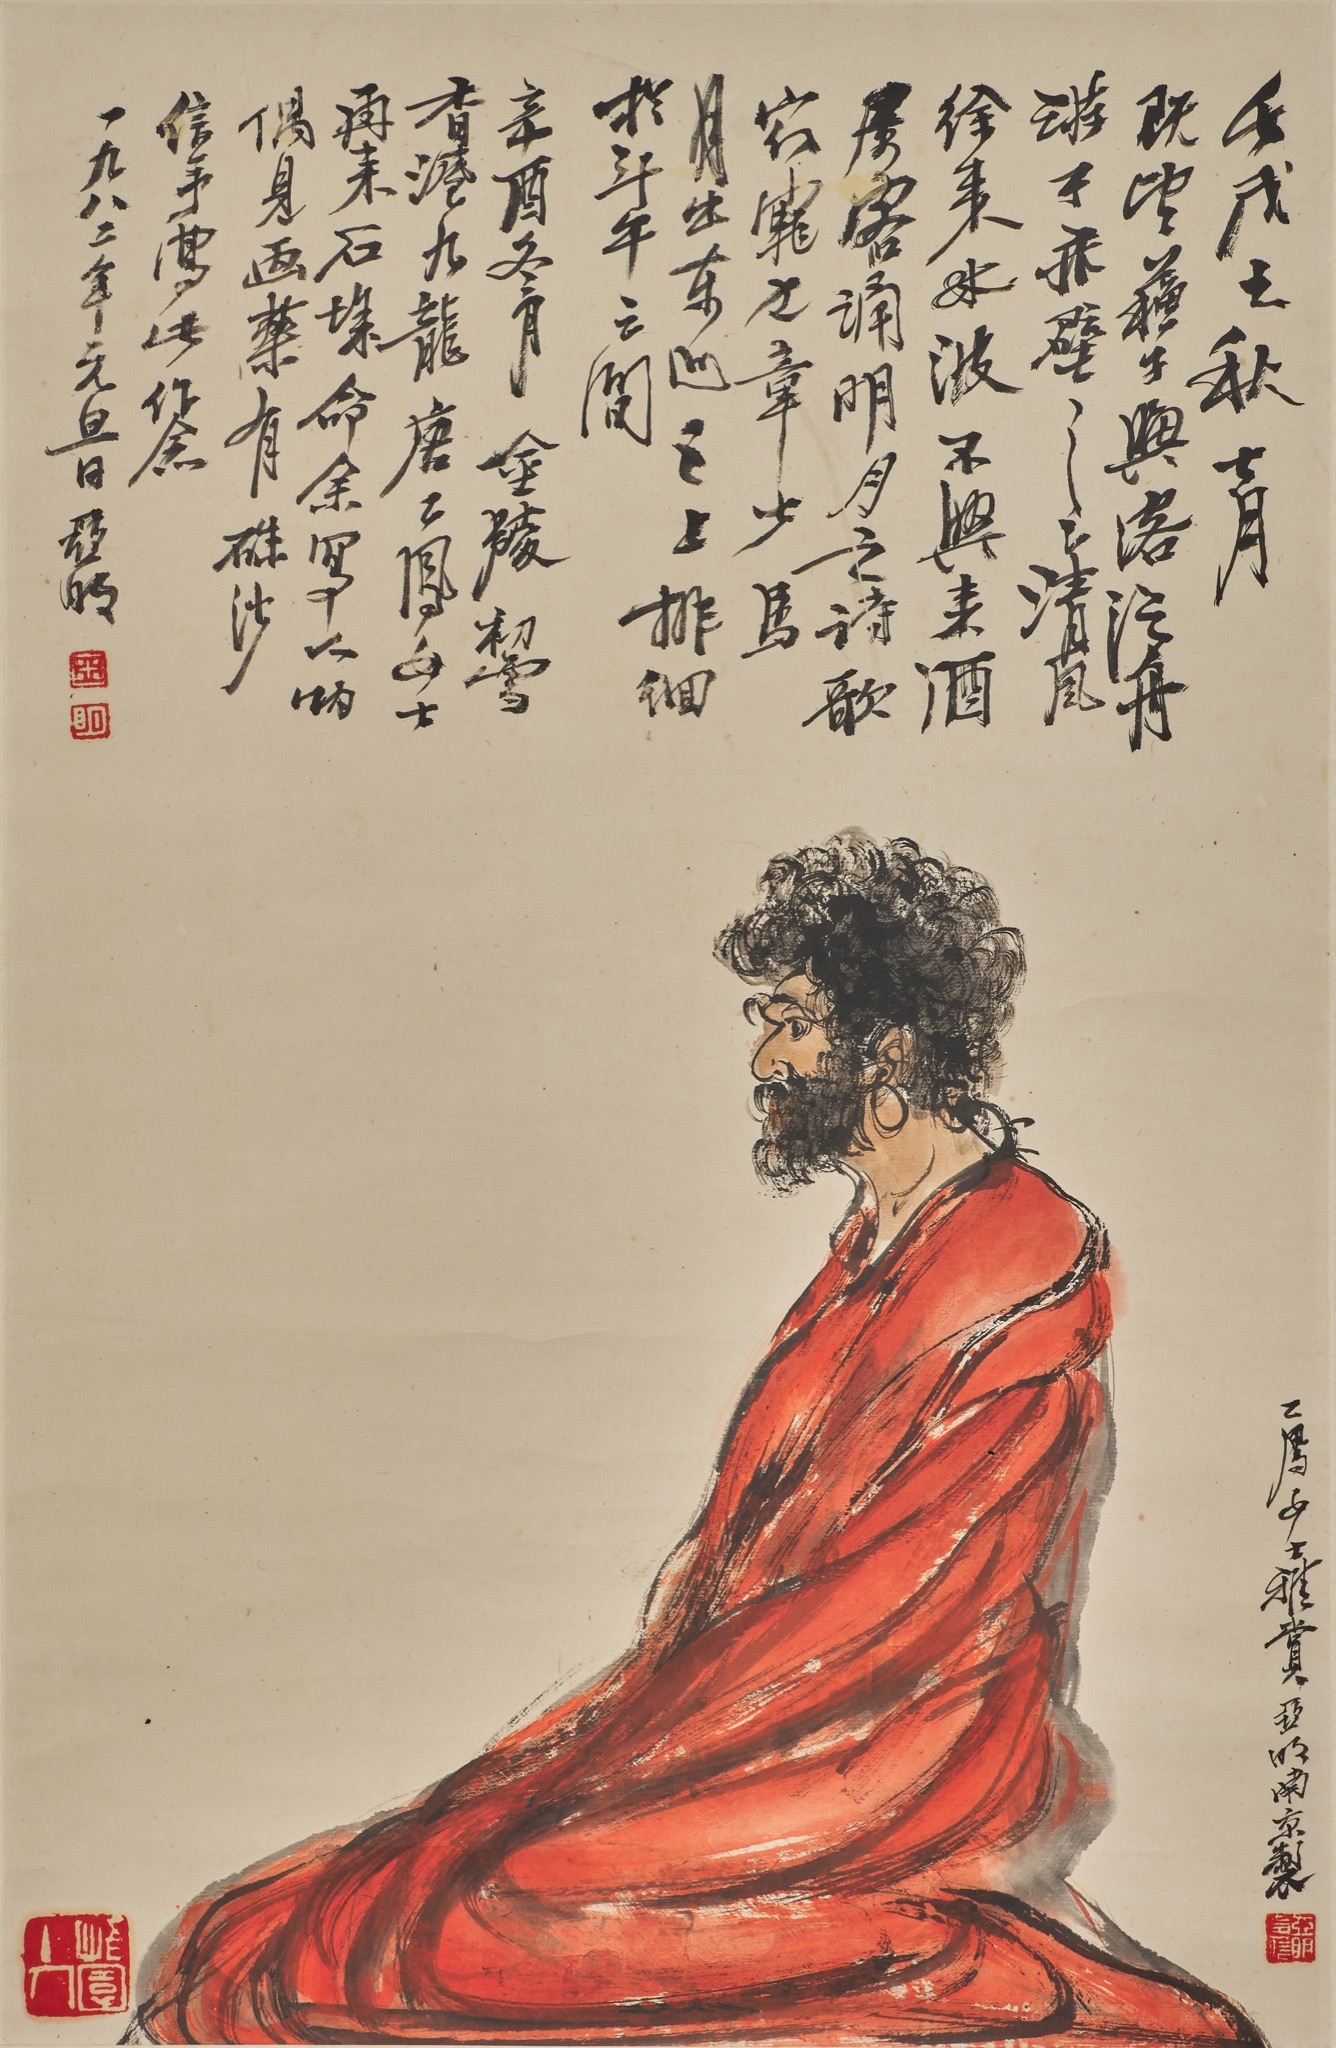 壬戌之秋七月
既望蘇子與客泛舟
遊于赤壁之下清風
徐來水波不興舉酒
屬客誦明月之詩歌
窈窕之章少焉
月出東山之上排徊
於斗牛之間
辛酉冬月 金陵初雪
香港九龍唐乙鳳女士
再來石城命余寫
偶見画案有硃沙
信手寫此作念
一九八二年元旦日 亞明
乙鳳女士雅賞 亞明南京製